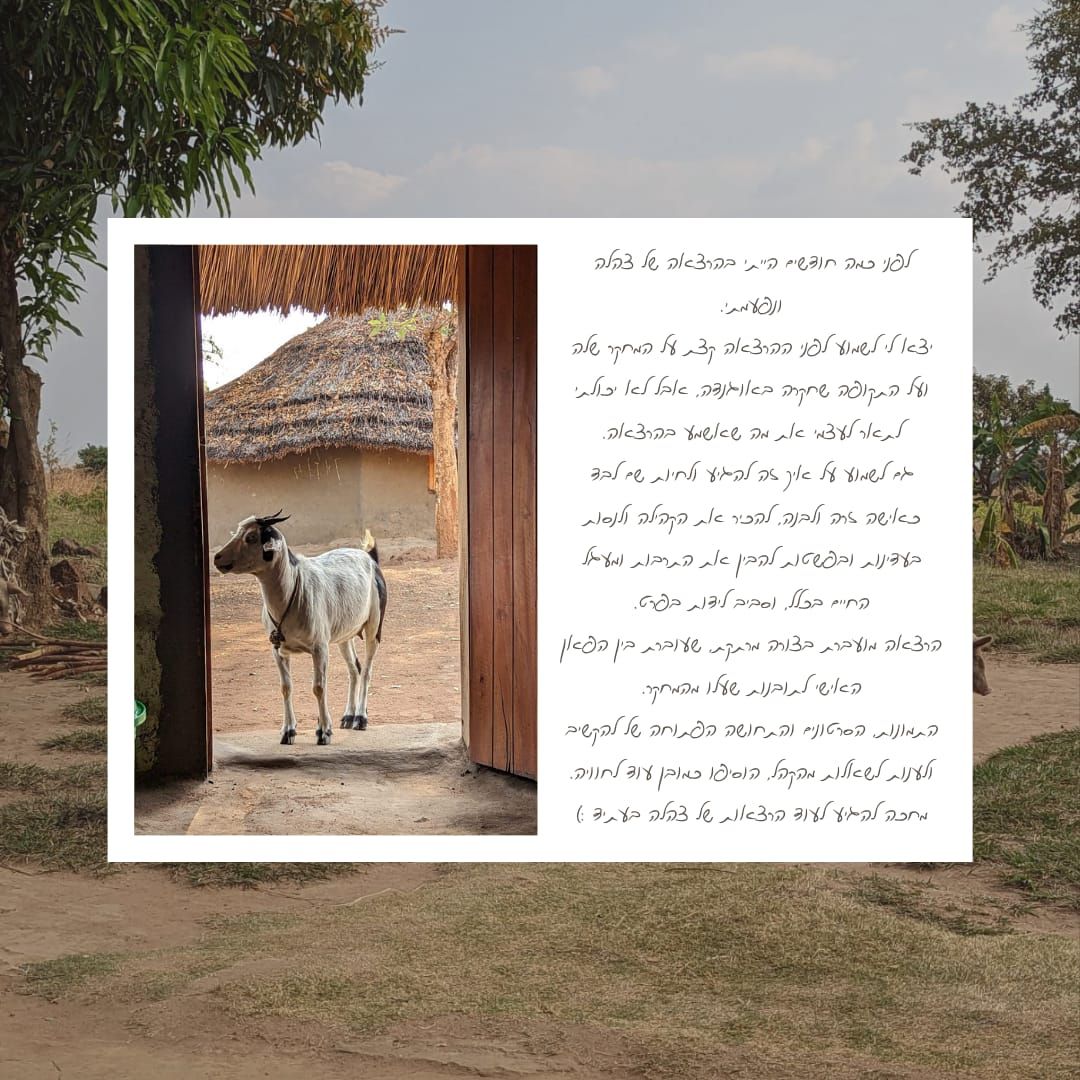 לפני כמה חודשים הייתי בהרצאה של צהלה
ונפעמתי.
יצא לי לשמוע לפני ההרצאה קצת על המחקר שלה
ועל התקופה שחקרה באוגנדה, אבל לא יכולתי
לתאר לעצמי את מה שאשמע בהרצאה.
גם לשמוע על איך זה להגיע ולחיות שם לבד
כאישה זרה ולבנה, להכיר את הקהילה ולנסות
בעדינות ובפשטות להבין את התרבות ומעגל
החיים בכלל, וסביב לידות בפרט.
הרצאה מועברת בצורה מרתקת, שעוברת בין הפאן
האישי לתובנות שעלו מהמחקר.
התמונות, הסרטונים והתחושה הפתוחה של להקשיב
ולענות לשאלות מהקהל, הוסיפו כמובן עוד לחוויה.
מחכה להגיע לעוד הרצאות של צהלה בעתיד :)